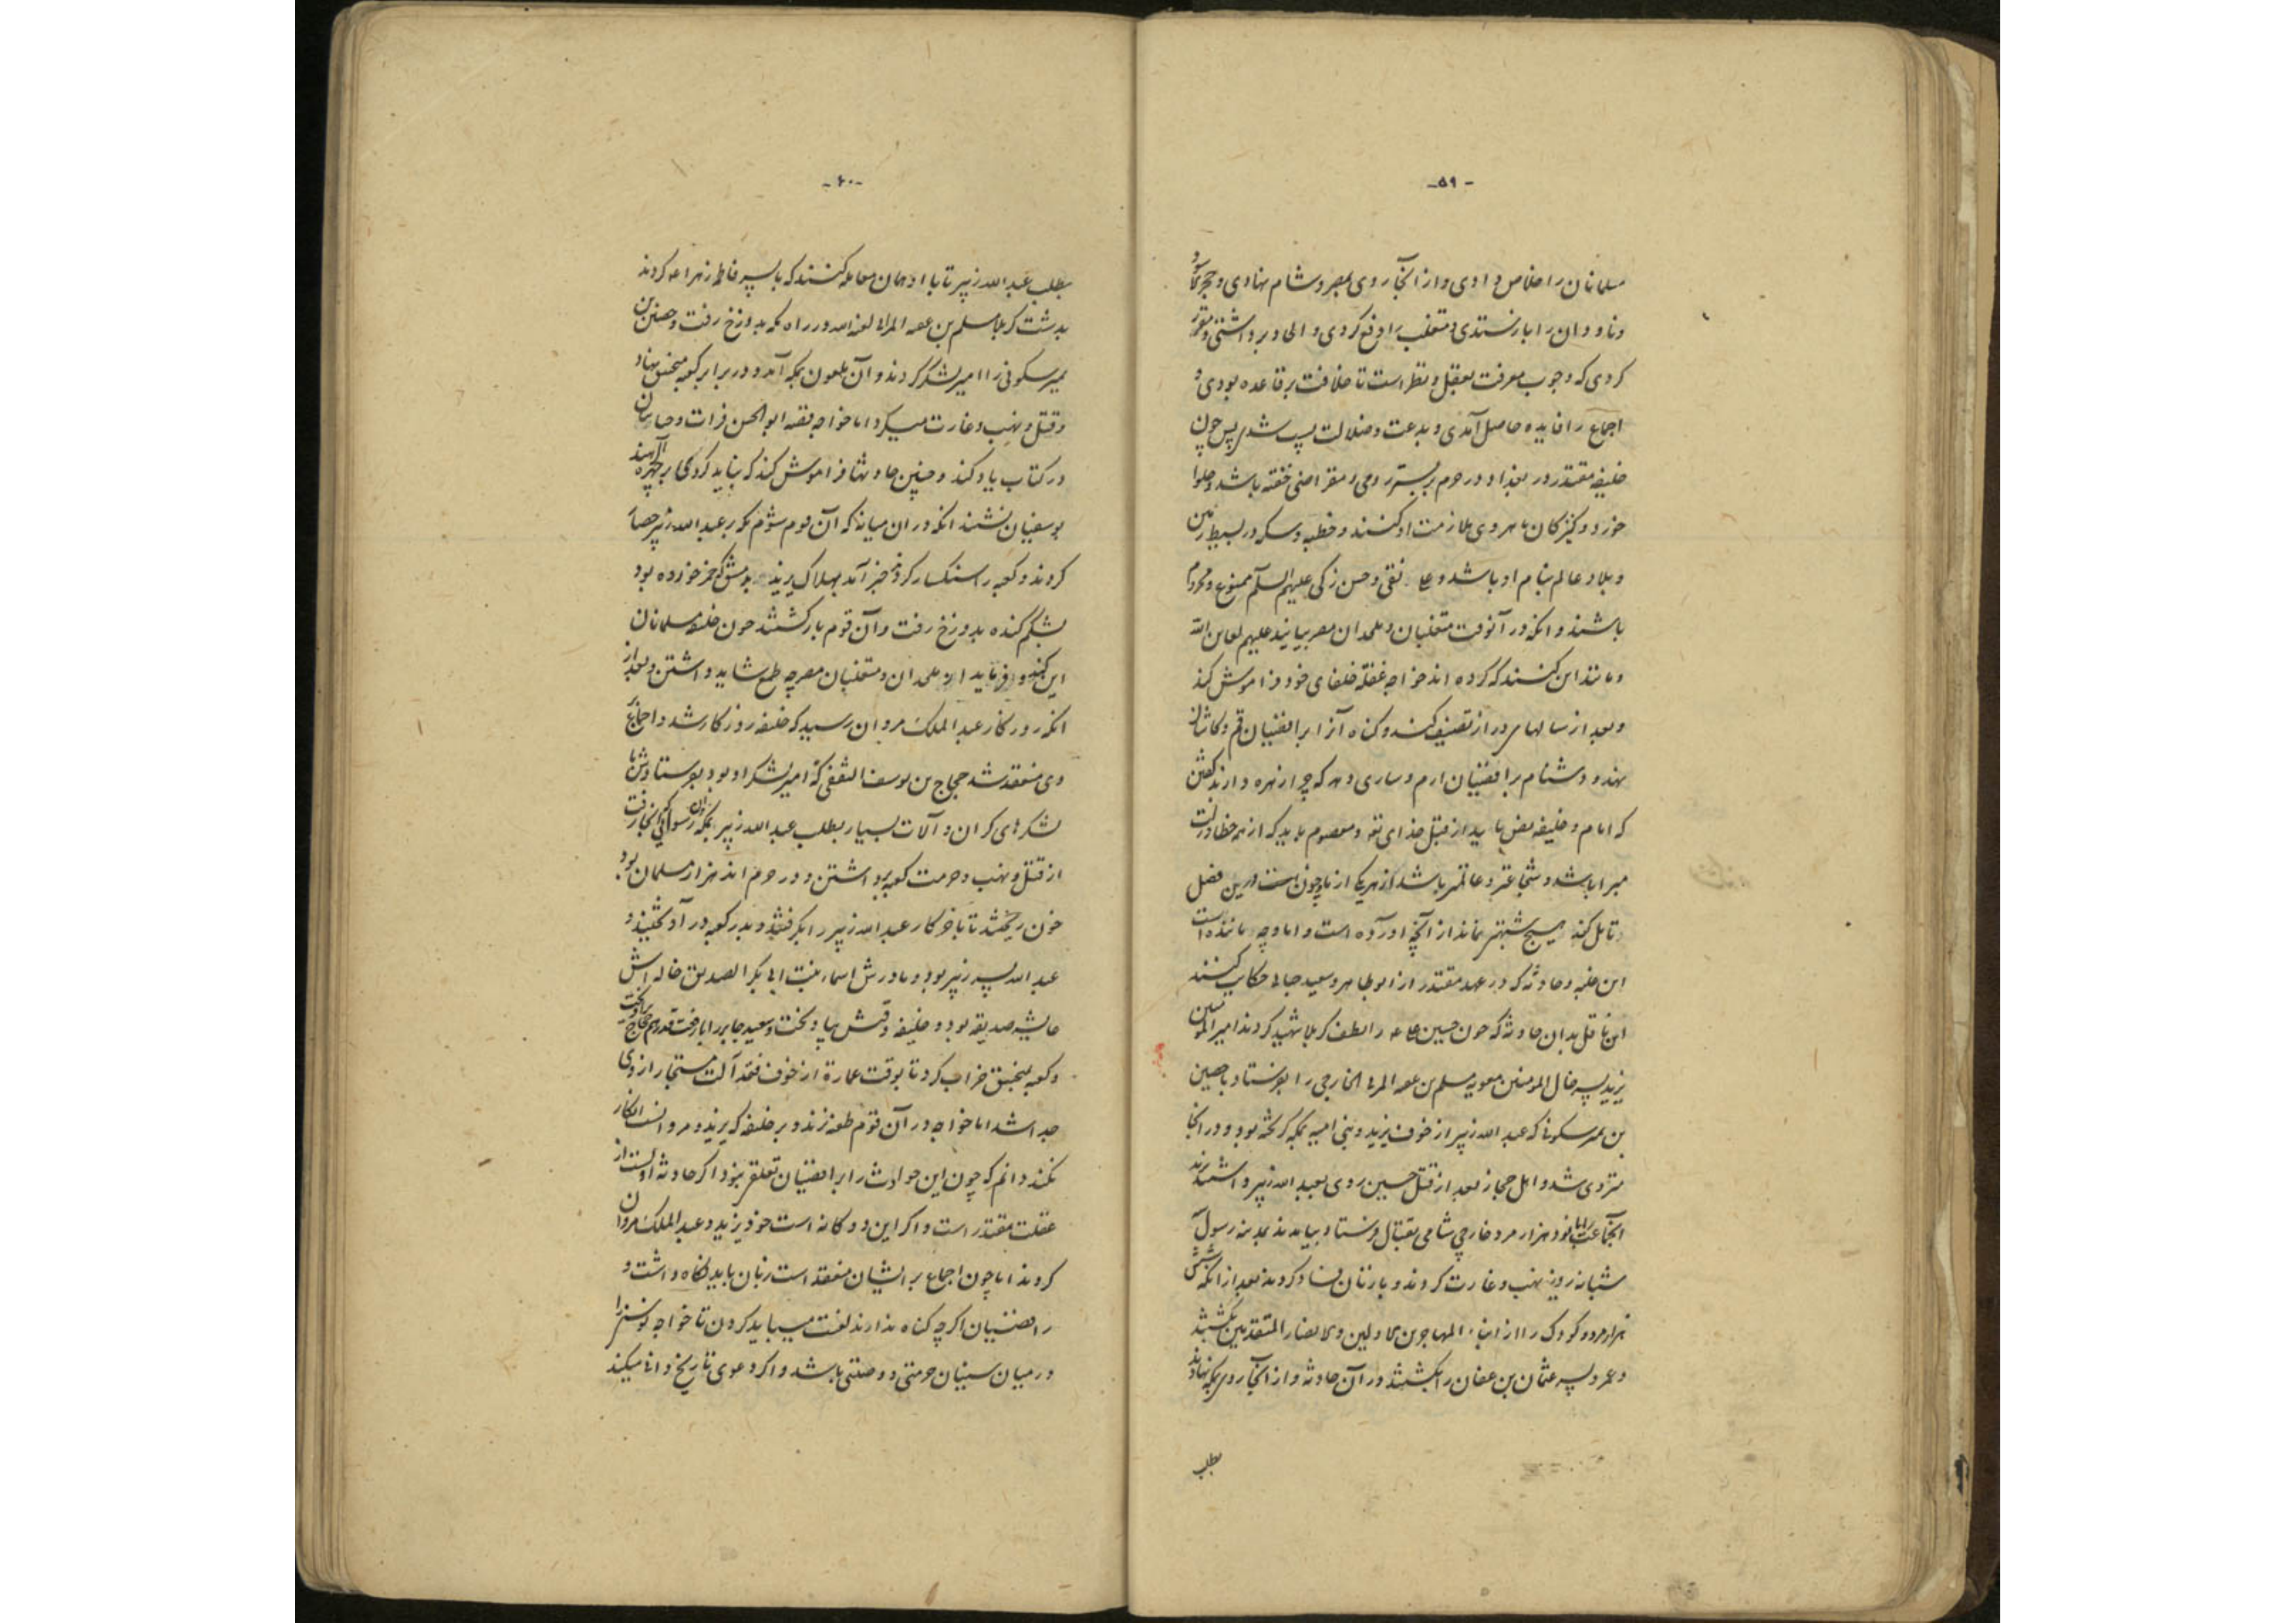 -۵۹-
مسلمانان را خلاص دادی و از آنجا روی بمصر و شام نهادی و حجر مکه را
و ناودان را باز ستدی و متغلب را دفع کردی و الحاد برداشتی و مقرر
کردی که وجوب معرفت بعقل و نظر است تا خلافت بر قاعده بودی و
اجماع را فایده حاصل آمدی و بدعت و ضلالت پست شدی پس چون
خلیفه مقتدر در بغداد در حرم بر بستر رومی و مقراضی خفته باشد و حلوا
خورد و کنیزکان ماهروی ملازمت او کنند و خطبه و سکه در بسیط زمین
و بلاد عالم بنام او باشد و علی نقی و حسن زکی علیهم السلام ممنوع و محروم
باشند و آنکه در آنوقت متغلبان و ملحدان مصر بیایند علیهم لعاین الله
و مانند این کنند که کرده اند خواجه غفلة خلفای خود فراموش کند
و بعد از سالهای دراز تصنیف کند و گناه آنرا برافضیان قم و کاشان
نهد و دشنام برافضیان ارم و ساری دهد که چرا زهره دارند گفتن
که امام و خلیفه نص باید از قبل خدای تع و معصوم باید که از همه خطا و زلت
مبرا باشد و شجاعتر و عالمتر باشد از هر یک از ما و چون است درین فصل
تامل کند هیچ شبهتش نماند از آنچه آورده است و اما وجه مانندۀ است
این خلبه و حادثه که در عهد مقتدر از ابوطاهر و سعید جنابی حکایت کنند
این ناقل بدان حادثه که چون حسین علی ع را بطف کربلا شهید کردند امیر المومنین
یزید پسر خال المومنین معویه مسلم بن عقبه المری الخارجی را بفرستاد با حصین
بن نمیر سکونی که عبد الله زبیر از خوف یزید و بنی امیه بمکه گریخته بود و در آنجا
متزوی شد و اهل حجاز بعد از قتل حسین روی بعبد الله زبیر داشتند یزید
آنجا عتاب نمود هزار مرد خارجی شامی بقتال فرستاد بیامدند بمدینه رسول
شبانه روز نهب و غارت کردند و با زنان فساد کردند بعد از آنکه شش
هزار مرد و کودک را از ابناء المهاجرین الاولین و الانصار المتقدمین بکشتند
و عمرو پسر عثمان بن عفان را بکشتند در آن حادثه و از آنجا روی بمکه نهادند
بطلب
-۶۰-
بطلب عبد الله زبیر تا با او همان معامله کنند که با پسر فاطمه زهرا ع کردند
بدشت کربلا مسلم بن عقبه المرائی لعنه الله در راه مکه بدوزخ رفت و حصین بن
نمیر سکونی را امیر لشکر کردند و آن ملعون بمکه آمد و در برابر کعبه منجنیق نهاد
و قتل و نهب و غارت میکرد اما خواجه قصه ابو الحسن فرات و حاسان
در کتاب یاد کند و چنین حادثها فراموش کند که نباید گردکی بر چهره آل هند
بوسفیان نشیند آنکه در آن میانه که آن قوم شوم مکه بر عبد الله زبیر حصار
کردند و کعبه را سنگسار کرده خبر آمد بهلاک یزید بدمشق که خمر خورده بود
شکم کنده بدوزخ رفت و آن قوم باز گشتند چون خلیفه مسلمانان
این کند و فرماید از ملحدان و متغلبان مصر چه طمع شاید داشتن و بعد از
آنکه روزگار عبد الملک مروان رسید که خلیفه روزگار شد و اجماع بر
وی منعقد شد حجاج بن یوسف الثقفی که امیر لشکر او بود بفرستادش با
لشکرهای گران و آلات بسیار بطلب عبد الله زبیر بمکه و آن رسوائی که آنجا رفت
از قتل و نهب و حرمت کعبه برداشتن و در حرم اند هزار مسلمان بود
خون ریختند تا بآخر کار عبد الله زبیر را بگرفتند و بدر کعبه در آویختند و
عبد الله پسر زبیر بود و مادرش اسماء بنت ابی بکر الصدیق خاله اش
عایشه صدیقه بود و خلیفه وقتش بیاویخت و سعید جابر را بار خت قدر هم حجاج
و کعبه بمنجنیق خراب کرد تا بوقت عمارة از خوف فقد آلت مستجار از وی
جدا شد اما خواجه در آن قوم طعنه نزند و بر خلیفه که یزید و مروانست انکار
نکند دانم که چون این حوادث را برافضیان تعلق نبود اگر حادثه اولست از
غفلت مقتدر است و اگر این دوگانه است خود یزید و عبد الملک مروان
کردند اما چون اجماع بر ایشان منعقد است زبان باید نگاه داشت و
رافضیان اگر چه گناه ندارند لعنت میباید کردن تا خواجه نو سنی را
در میان سنیان حرمتی و وصلتی باشد و اگر دعوی تاریخ دانی میکند